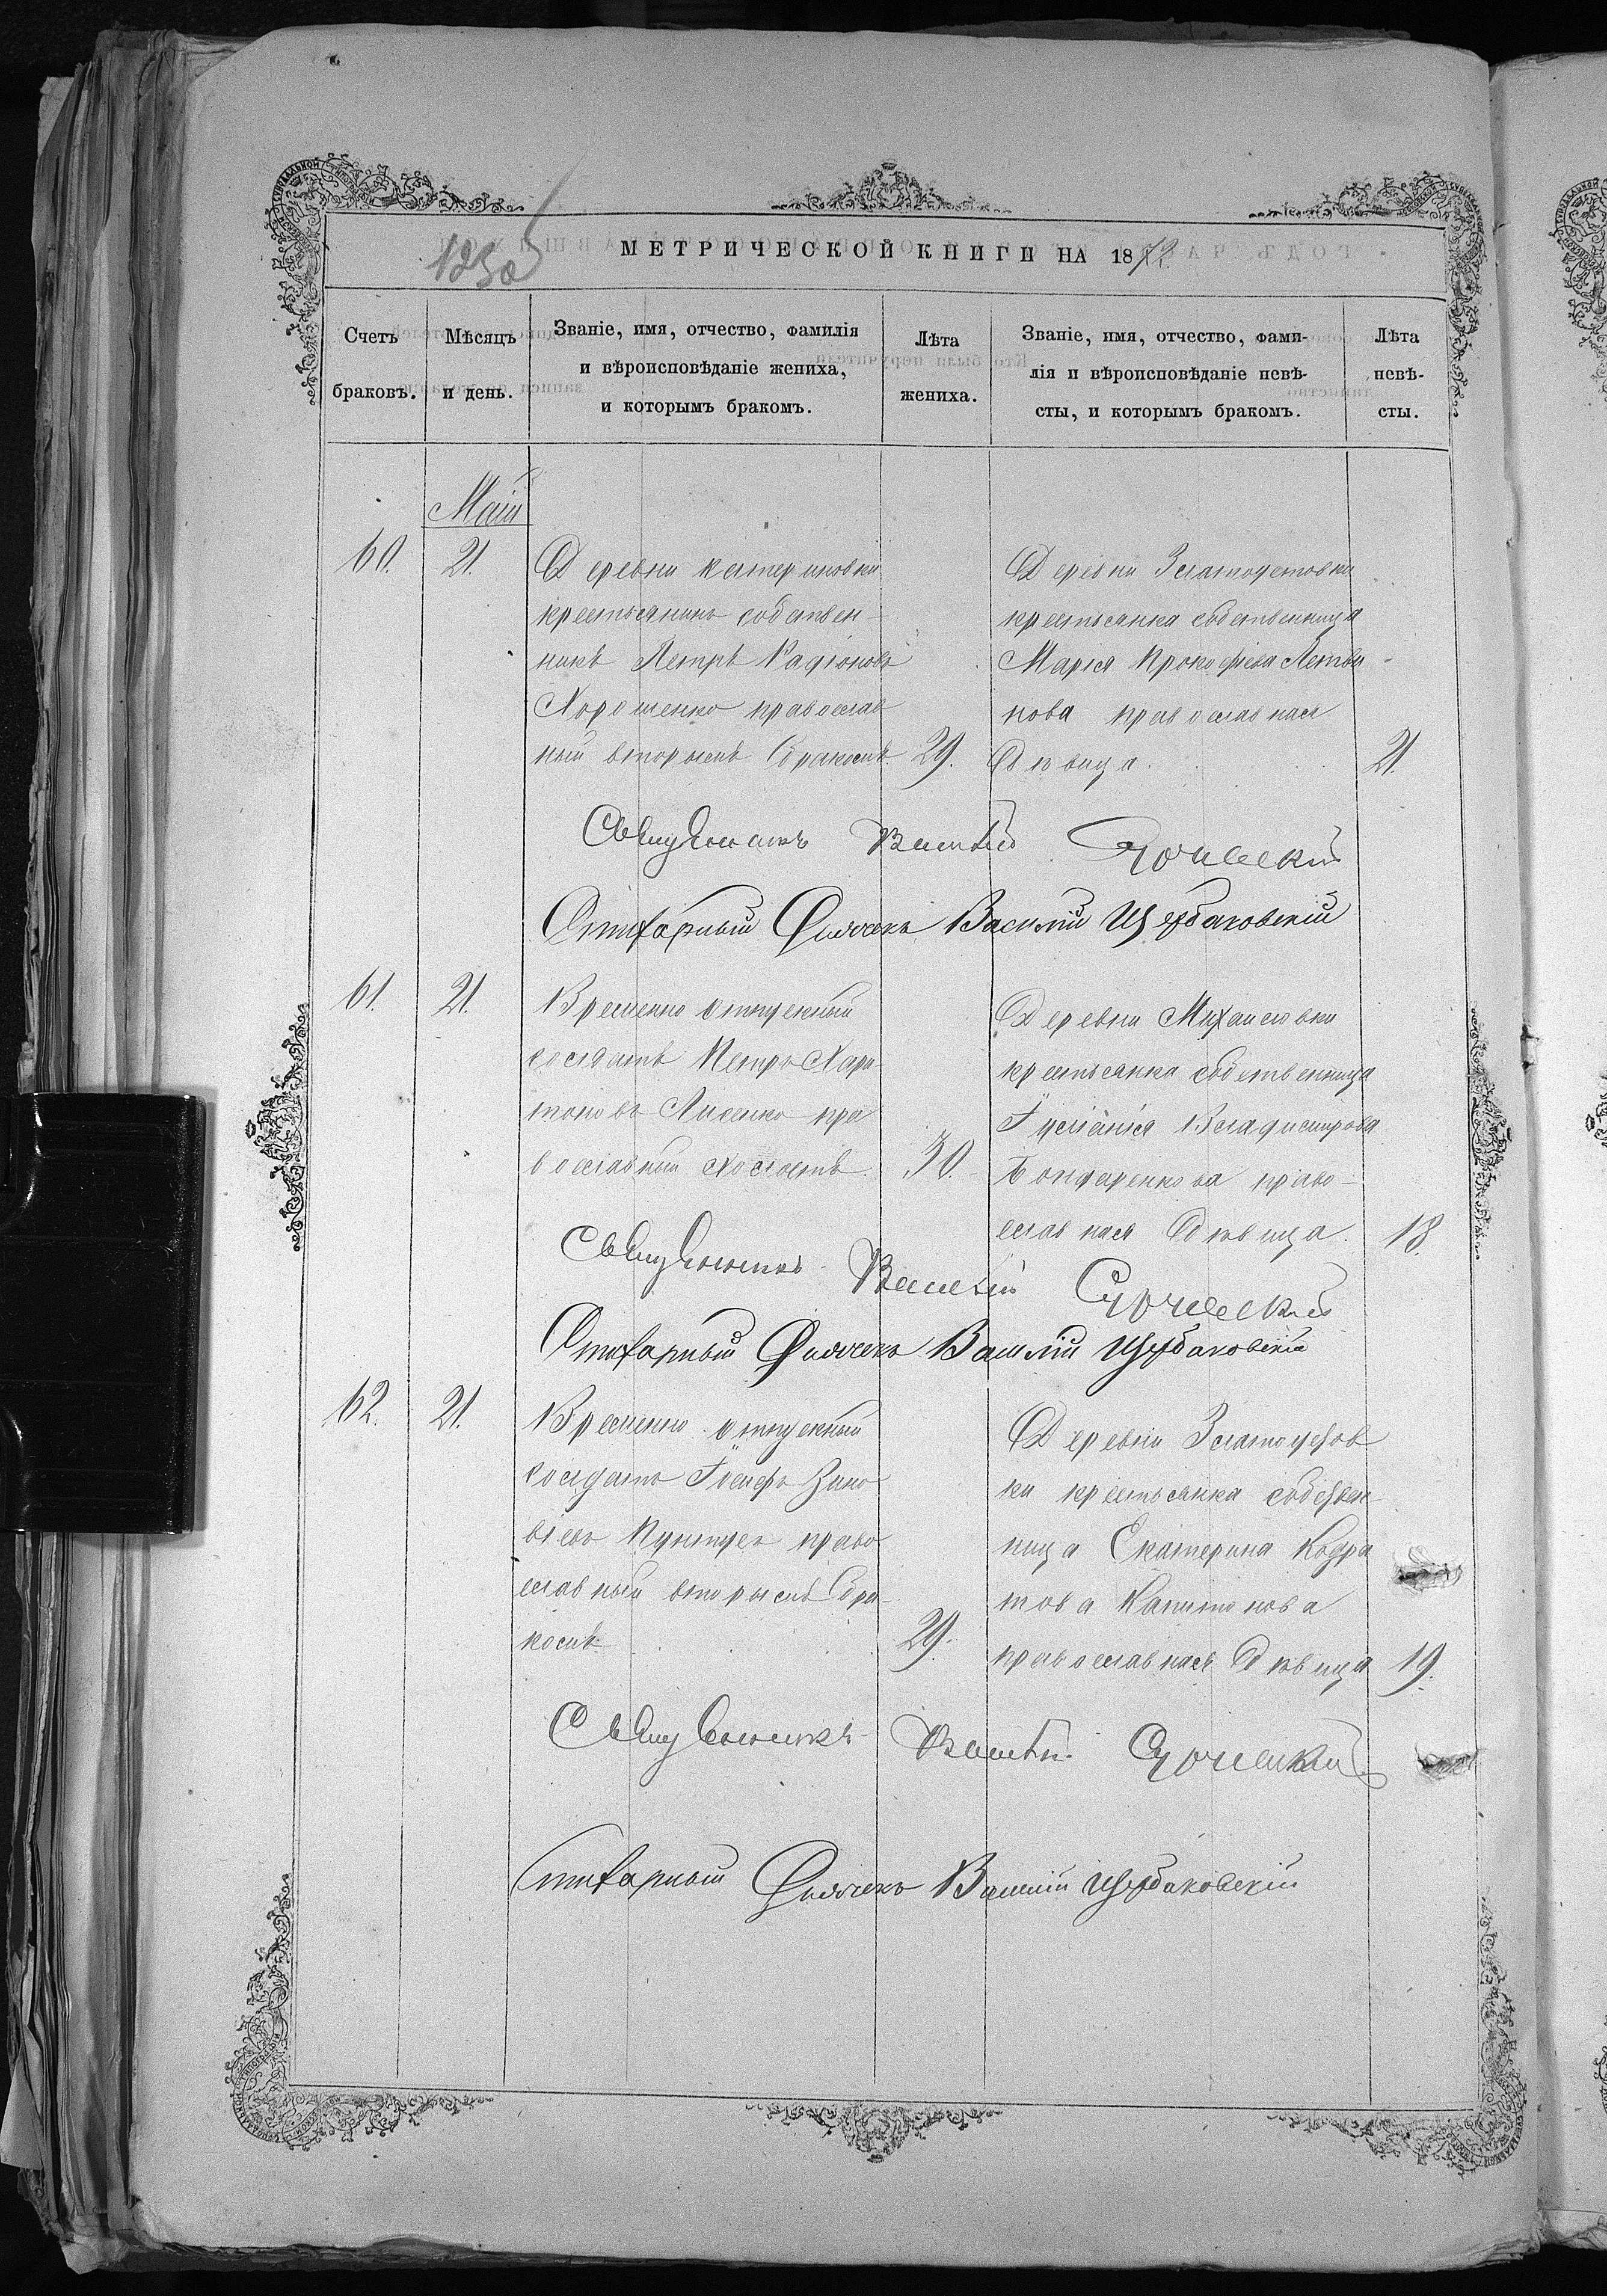 1230
МЕТРИЧЕСКОЙ КНИГИ НА 1872
Счетъ браковъ.
Мѣсяцъ и день.
Званіе, имя, отчество, фамилія
и вѣроисповѣданіе жениха,
и которымъ бракомъ.
Лѣта жениха.
Званіе, имя, отчество, фами-
лія и вѣроисповѣданіе невѣ-
сты, и которымъ бракомъ.
Лѣта невѣ-
сты.
Маій
60. 21.
Деревни Катериновки
крестьянинъ собствен-
никъ Петръ Радіоновъ
Хорошенко православ
ный вторымъ бракомъ. 29.
Деревни Златоустовки
крестьянка собственница
Марія Прокофіева Летви-
нова православная
Дѣвица. 21.
Священникъ Василій
Стихарный Дьячекъ Василій Щербаковскій
61. 21.
Временно отпускный
солдатъ Петръ Хари
тоновъ Лисенко пра
вославный холостъ. 30.
Деревни Михайловки
крестьянка собственница
Іуліанія Владимирова
Бондаренкова право-
славная Дѣвица. 18.
Священникъ Василій
Стихарный Дьячекъ Василій Щербаковскій
62. 21.
Временно отпускный
солдатъ Іосифъ Зино
віевъ право
славный вторымъ бра-
комъ. 29.
Деревни Златоустов
ки крестьянка собствен-
ница Екатерина Кодра
това Капитонова
православная Дѣвица 19.
Священникъ Василій
Стихарный Дьячекъ Василій Щербаковскій